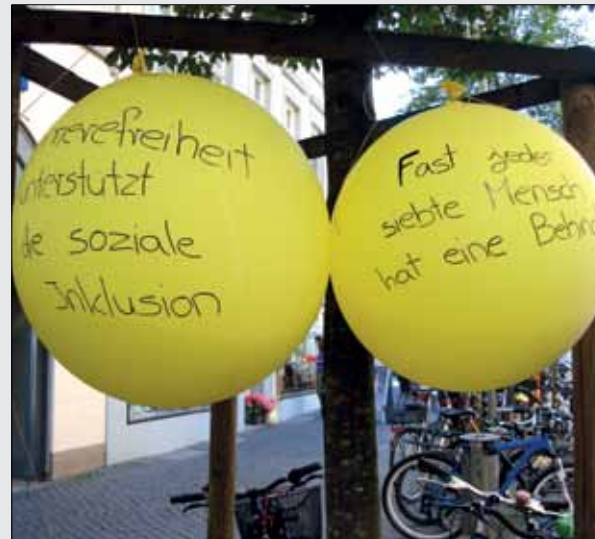 rrierefreiheit
unterstützt
die soziale
Inklusion
Fast jeder
siebte Mensch
hat eine Behin